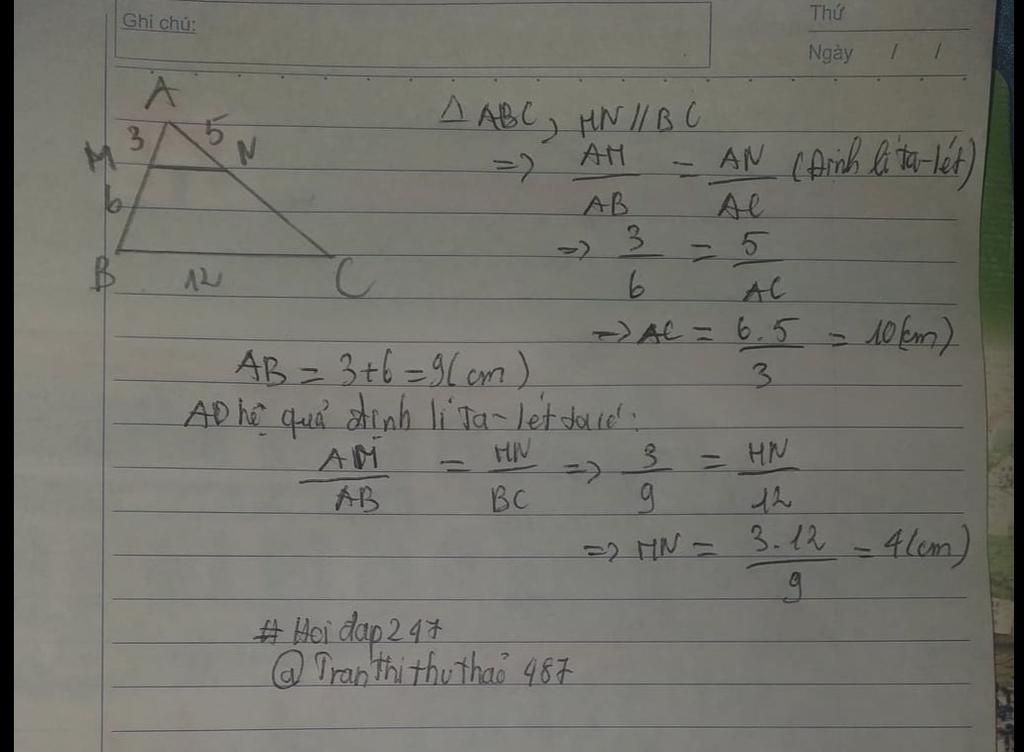 Ghi chú:
Thứ
Ngày / /
A
3 5
M N
6
B 12 C
Δ ABC, MN // BC
=> AM/AB = AN/AC (Định lí ta-lét)
=> 3/6 = 5/AC
=> AC = 6.5/3 = 10(cm)
AB = 3+6 = 9(cm)
AD hệ quả định lí Ta-lét ta có:
AM/AB = MN/BC => 3/9 = MN/12
=> MN = 3.12/9 = 4(cm)
# Hoi dap 247
@Tranthithuthảo 487